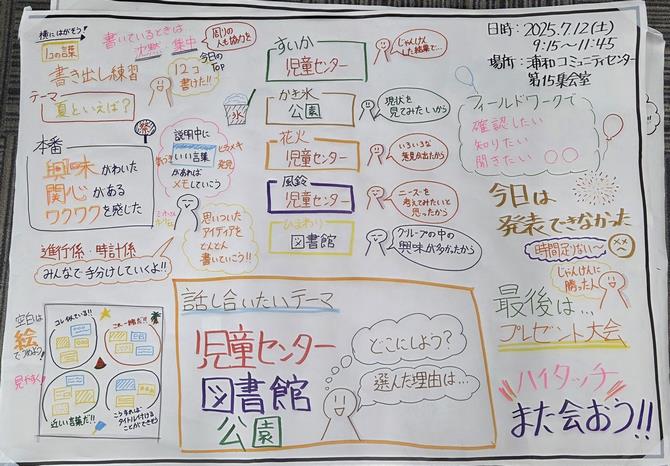 横にはがそう!
1コの言葉
書いているときは
沈黙 集中
周りの
人も協力を
書き出し練習
今日の
TOP
12コ
書けた!!
テーマ
夏といえば?
本番
興味がわいた
関心がある
ワクワクを感じた
祭
説明中に
いい言葉
があれば
メモしていこう
ヒラメキ
発見
思いついた
アイディアを
どんどん
書いていこう!!
進行係・時計係
みんなで手分けしていくよ!!
空白は
絵
でうめよう!
見やすく!
コレ似ている!!
これ一緒だ!!
近しい言葉だ!!
こうすれば
タイトル付ける
ことができそう
すいか
児童センター
じゃんけん
した結果で…
かき氷
氷
公園
現状を
見てみたいから
花火
児童センター
いろいろな
発見が出たから
風鈴
児童センター
ニーズを
考えてみたいと
思ったから
ひまわり
図書館
グループの中の
興味が多かったから
話し合いたいテーマ
児童センター
図書館
公園
どこにしよう?
選んだ理由は…
日時:2025.7.12(土)
9:15~11:45
場所:浦和コミュニティセンター
第15集会室
フィールドワークで
確認したい
知りたい
聞きたい ○○
今日は
発表できなかった
時間足りない~
じゃんけんに
勝った人
最後は…
プレゼント大会
ハイタッチ
また会おう!!